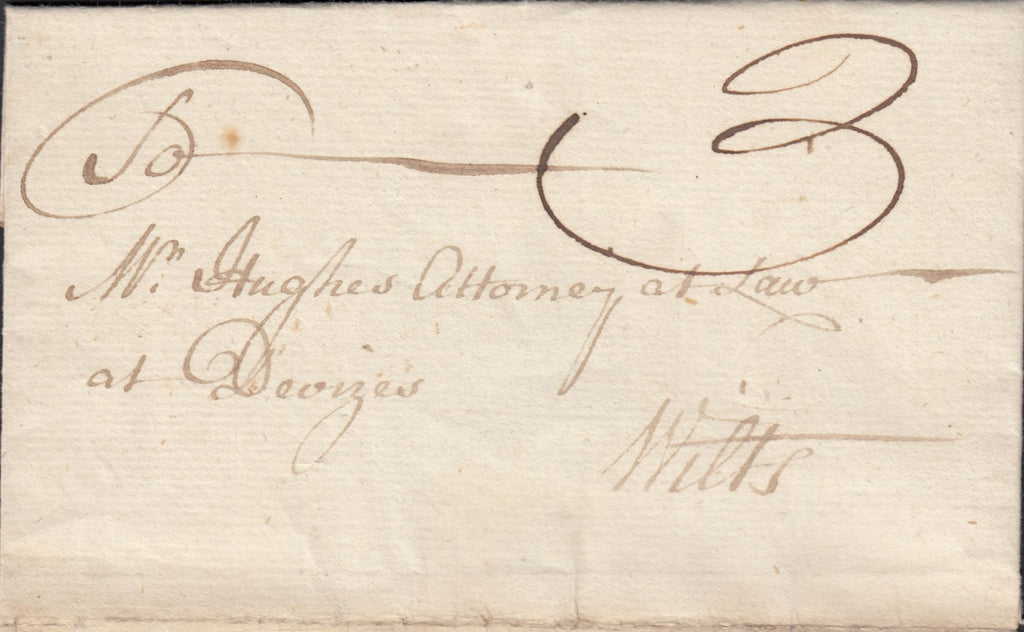 To 3
Mr. Hughes Attorney at Law
at Devizes
Wilts